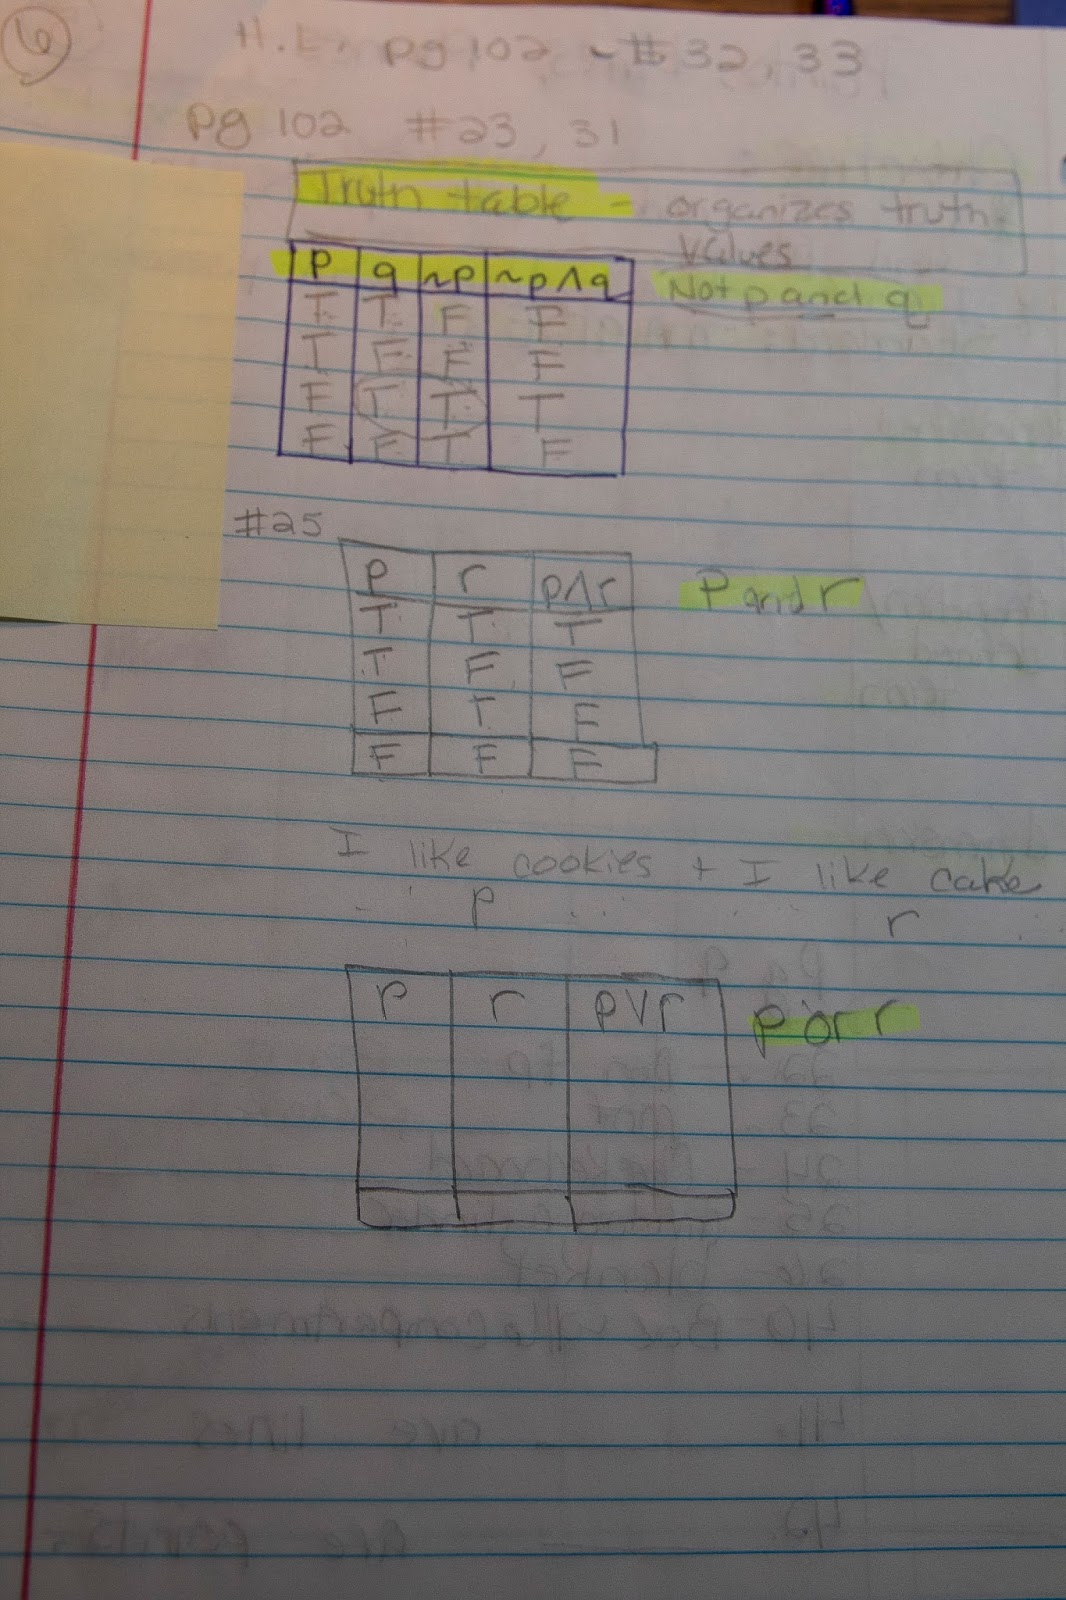 6
H.L. pg 102 - # 32, 33
pg 102 # 23, 31
Truth table - organizes truth
values
p q ~p ~p∧q Not p and q
T T F F
T F F F
F T T T
F F T F
#25
p r p∧r P and r
T T T
T F F
F T F
F F F
I like cookies + I like cake
p r
p r p∨r p or r